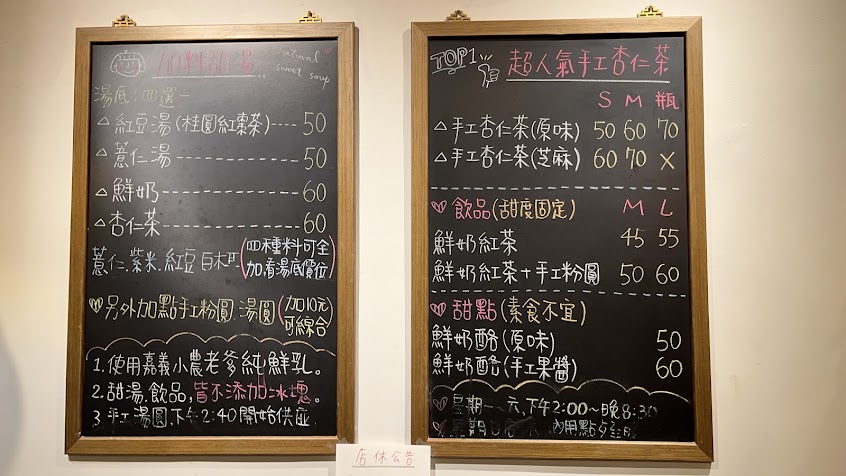 加料甜湯
natural
sweet soup
湯底:四選一
△紅豆湯(桂圓紅棗茶)----50
△薏仁湯----------------50
△鮮奶------------------60
△杏仁茶----------------60
薏仁.紫米.紅豆.白木耳(四種料可全
加.看湯底價位)
另外加點手工粉圓.湯圓(加10元
可綜合)
1.使用嘉義小農老爹純鮮乳。
2.甜湯.飲品,皆不添加冰塊。
3.手工湯圓,下午2:40開始供應
TOP1 超人氣手工杏仁茶
S M 瓶
△手工杏仁茶(原味) 50 60 70
△手工杏仁茶(芝麻) 60 70 X
飲品(甜度固定) M L
鮮奶紅茶 45 55
鮮奶紅茶+手工粉圓 50 60
甜點(素食不宜)
鮮奶酪(原味) 50
鮮奶酪(手工果醬) 60
星期一~六,下午2:00~晚8:30
星期
內用點
店休公告